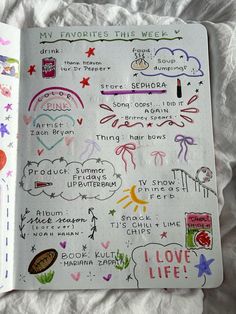 MY FAVORITES THIS WEEK
drink
food
thank heaven for Dr Pepper
SOUP dumplings?
store: SEPHORA
COLOR
PINK
Song: OOPS!... I DID IT AGAIN
- Britney Spears
Artist: Zach Bryan
Thing: hair bows
Product: Summer Fridays LIP BUTTER BALM
TV Show
phineas & Ferb
Album: stick season (forever)
- NOAH KAHAN
Snack:
TJ'S CHILI + LIME CHIPS
BOOK: KULTI
- MARIANA ZAPATA
I LOVE LIFE!